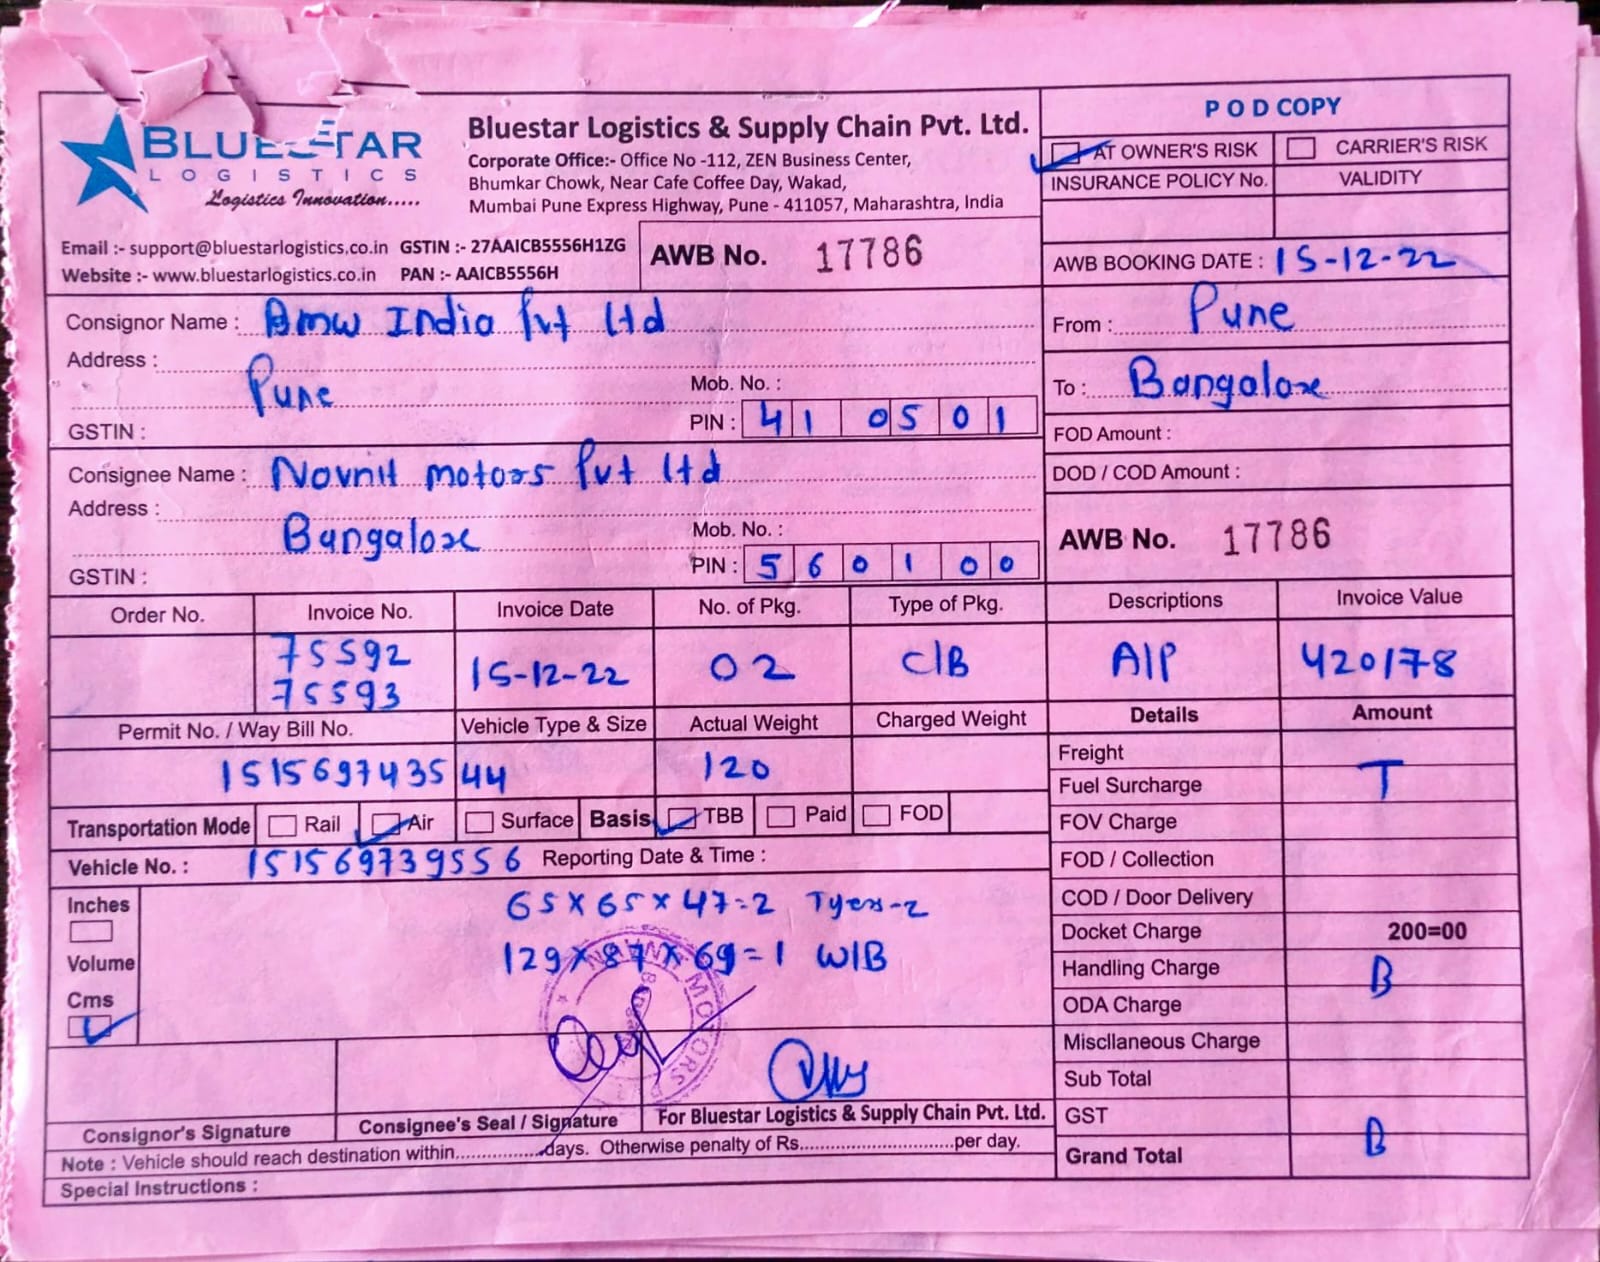 BLUESTAR
LOGISTICS
Logistics Innovation.....
Bluestar Logistics & Supply Chain Pvt. Ltd.
Corporate Office:- Office No -112, ZEN Business Center,
Bhumkar Chowk, Near Cafe Coffee Day, Wakad,
Mumbai Pune Express Highway, Pune - 411057, Maharashtra, India
POD COPY
AT OWNER'S RISK CARRIER'S RISK
INSURANCE POLICY No. VALIDITY
Email :- support@bluestarlogistics.co.in GSTIN :- 27AAICB5556H1ZG
Website :- www.bluestarlogistics.co.in PAN :- AAICB5556H
AWB No. 17786
AWB BOOKING DATE : 15-12-22
Consignor Name : Bmw India Pvt Ltd
Address :
Pune
Mob. No. :
GSTIN :
PIN : 410501
From : Pune
To : Bangalore
FOD Amount :
DOD / COD Amount :
Consignee Name : Navnit motors Pvt Ltd
Address :
Bangalore
Mob. No. :
GSTIN :
PIN : 560100
AWB No. 17786
Order No. Invoice No. Invoice Date No. of Pkg. Type of Pkg. Descriptions Invoice Value
75592
75593
15-12-22 02 C/B A/P 420178
Permit No. / Way Bill No. Vehicle Type & Size Actual Weight Charged Weight Details Amount
151569743544 120
Freight
Fuel Surcharge T
Transportation Mode Rail Air Surface Basis TBB Paid FOD
FOV Charge
Vehicle No. : 151569739556 Reporting Date & Time :
FOD / Collection
Inches
65 x 65 x 47=2 Tyer-2
COD / Door Delivery
Docket Charge 200=00
Volume
129 x 87 x 69=1 W/B
Handling Charge B
Cms
ODA Charge
Miscllaneous Charge
Sub Total
NAVNIT MOTORS
Consignor's Signature Consignee's Seal / Signature For Bluestar Logistics & Supply Chain Pvt. Ltd.
GST
Note : Vehicle should reach destination within.................days. Otherwise penalty of Rs.............................per day.
Grand Total B
Special Instructions :